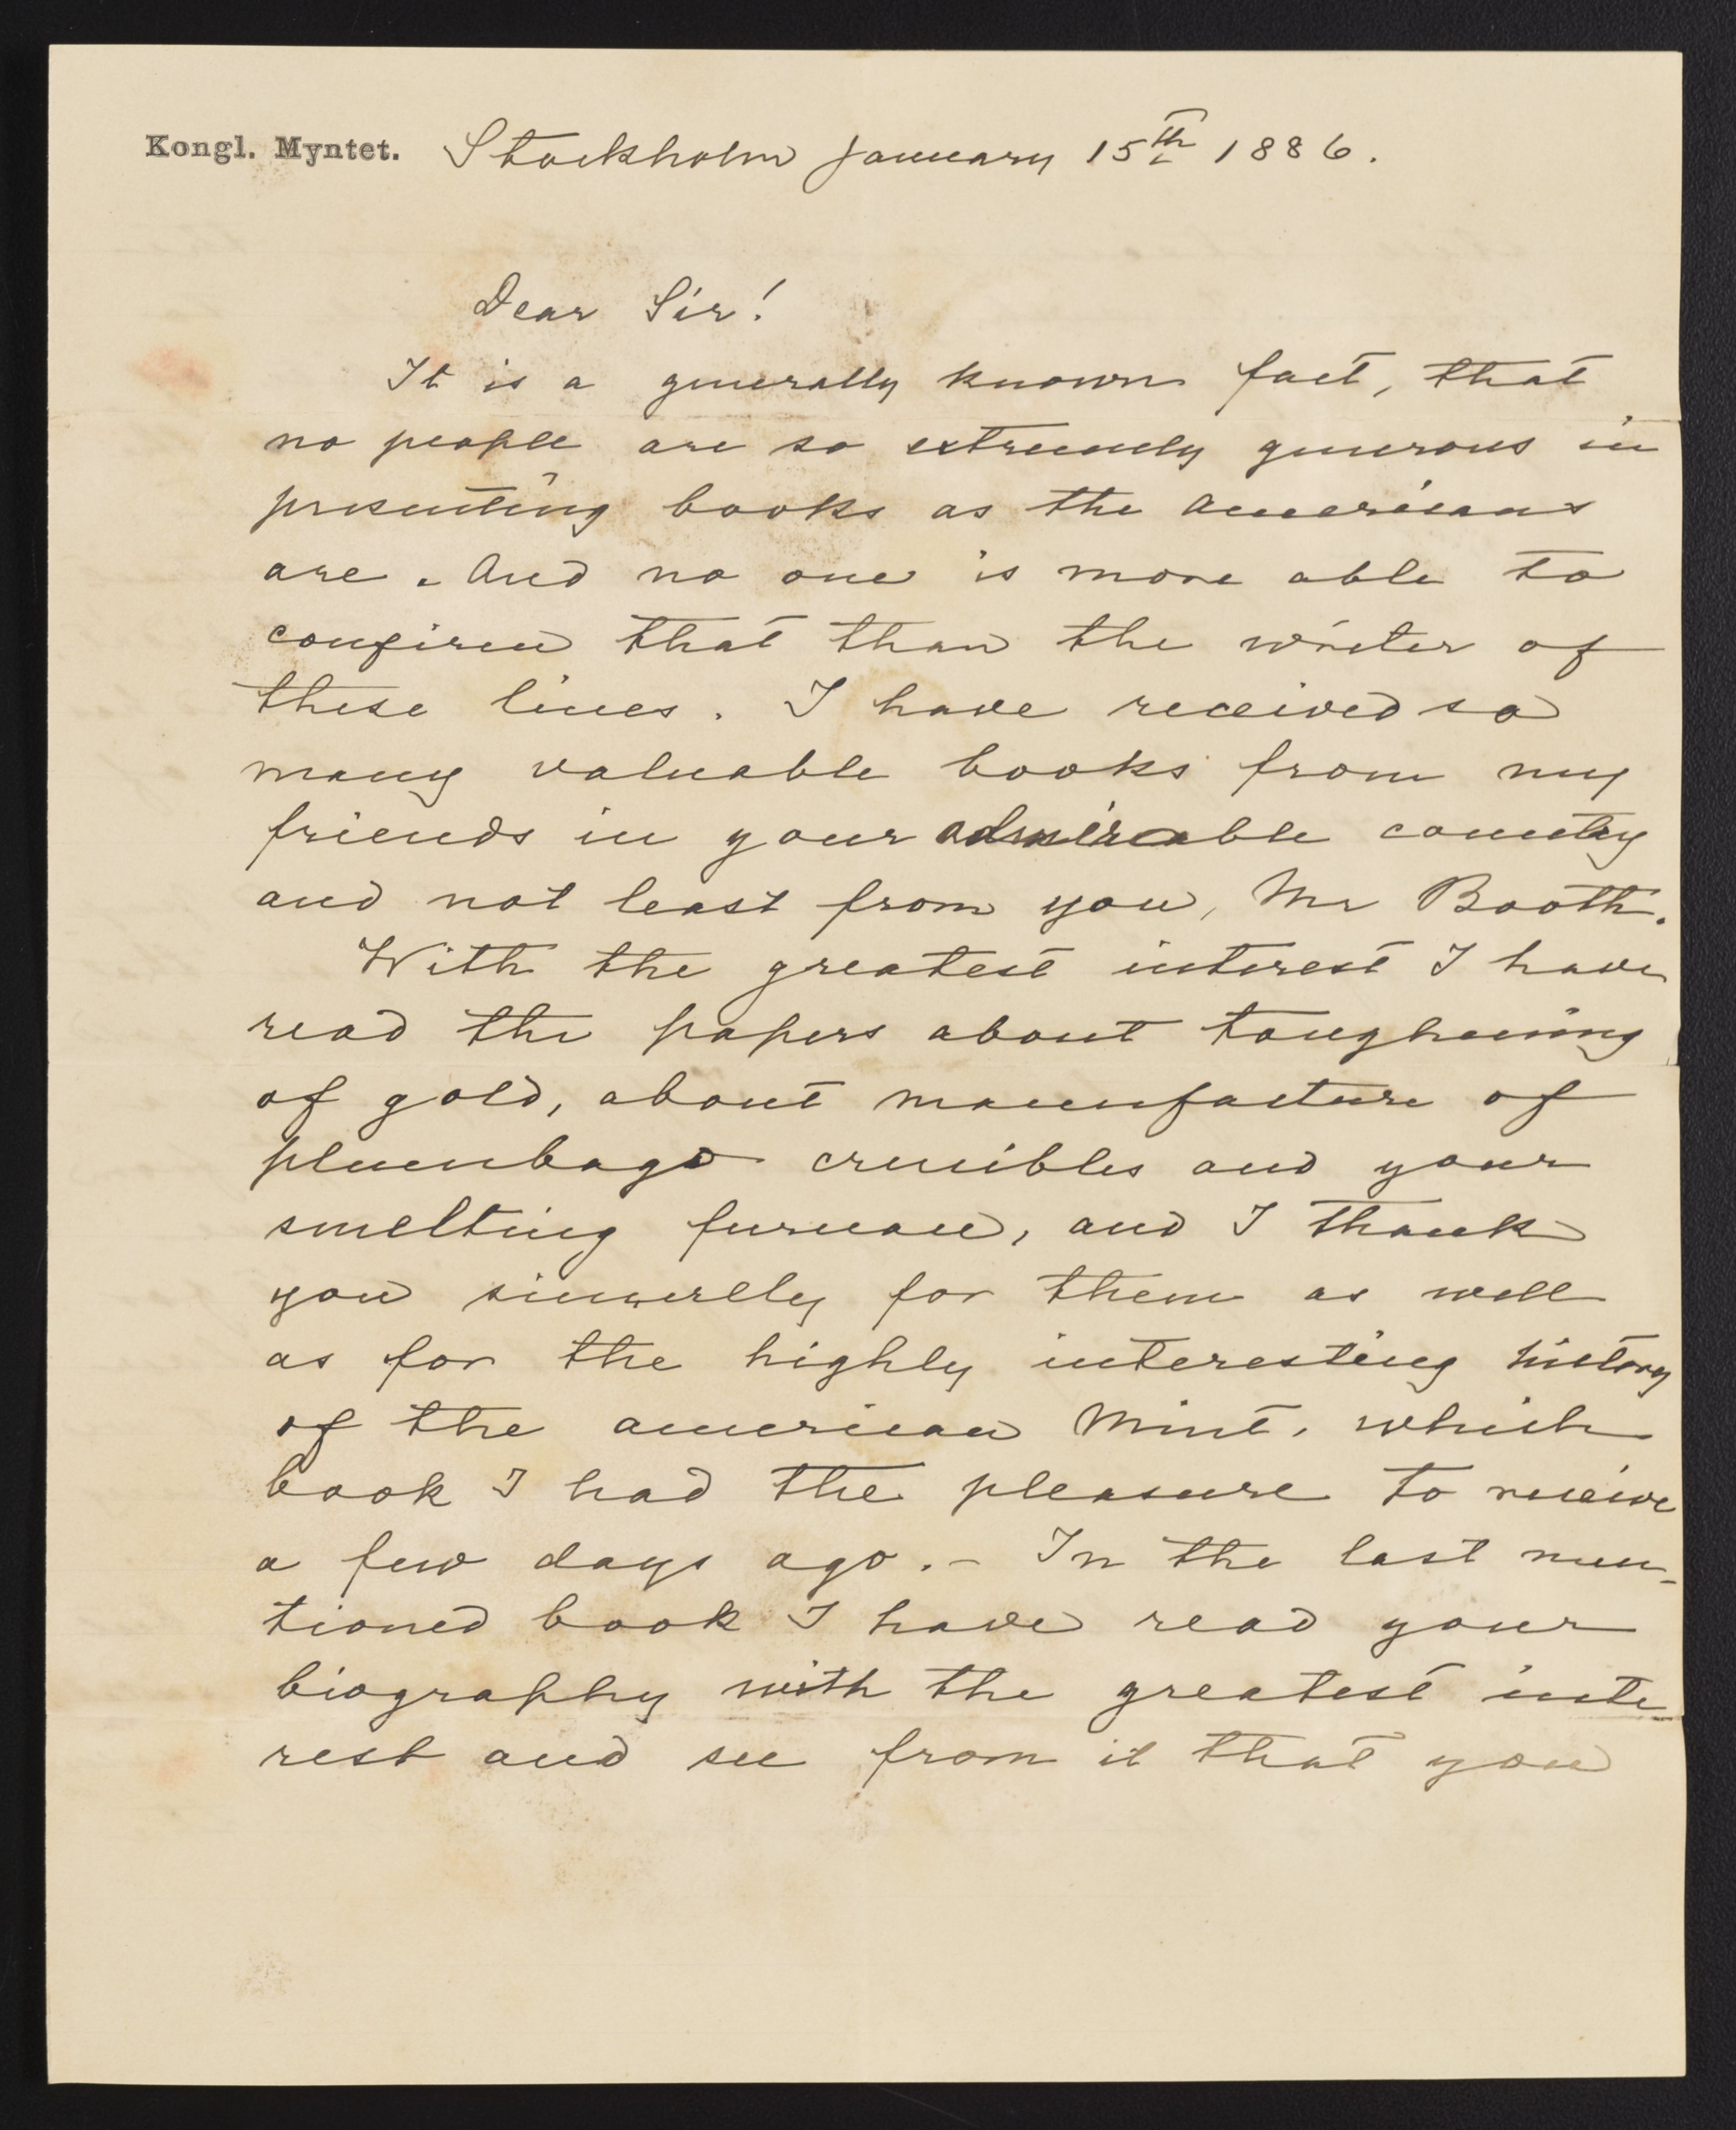 Kongl. Myntet. Stockholm January 15th 1886.
Dear Sir!
It is a generally known fact, that
no people are so extremely generous in
presenting books as the Americans
are. And no one is more able to
confirm that than the writer of
these lines. I have received so
many valuable books from my
friends in your admirable country
and not least from you, Mr Booth.
With the greatest interest I have
read the papers about toughening
of gold, about manufacture of
plumbago crucibles and your
smelting furnace, and I thank
you sincerelly for them as well
as for the highly interesting history
of the american Mint, which
book I had the pleasure to receive
a few days ago. – In the last men-
tioned book I have read your
biography with the greatest inte-
rest and see from it that you